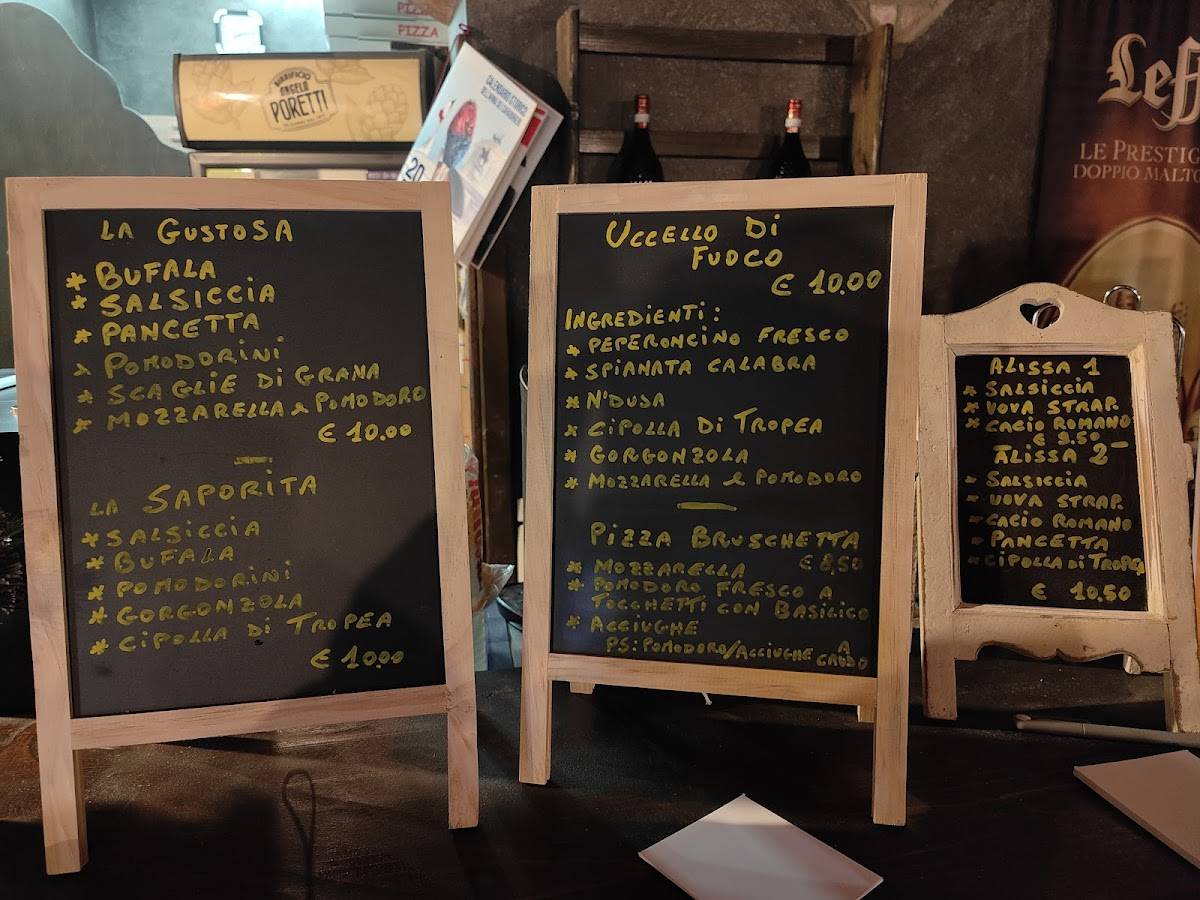 PIZZA
PIZZA
BIRRIFICIO
ANGELO
PORETTI
CALENDARIO STORICO
20
Leff
LE PRESTIG
DOPPIO MALTO
LA GUSTOSA
* BUFALA
* SALSICCIA
* PANCETTA
* POMODORINI
* SCAGLIE DI GRANA
* MOZZARELLA e POMODORO
€ 10.00
LA SAPORITA
* SALSICCIA
* BUFALA
* POMODORINI
* GORGONZOLA
* CIPOLLA DI TROPEA
€ 10.00
UCCELLO DI
FUOCO
€ 10.00
INGREDIENTI:
* PEPERONCINO FRESCO
* SPIANATA CALABRA
* N'DUSA
* CIPOLLA DI TROPEA
* GORGONZOLA
* MOZZARELLA e POMODORO
PIZZA BRUSCHETTA
* MOZZARELLA € 8,50
* POMODORO FRESCO A
TOCCHETTI CON BASILICO
* ACCIUGHE
PS: POMODORO/ACCIUGHE A CRUDO
ALISSA 1
* SALSICCIA
* UOVA STRAP.
* CACIO ROMANO
€ 8.50
ALISSA 2
- SALSICCIA
- UOVA STRAP.
- CACIO ROMANO
- PANCETTA
- CIPOLLA DI TROPEA
€ 10.50